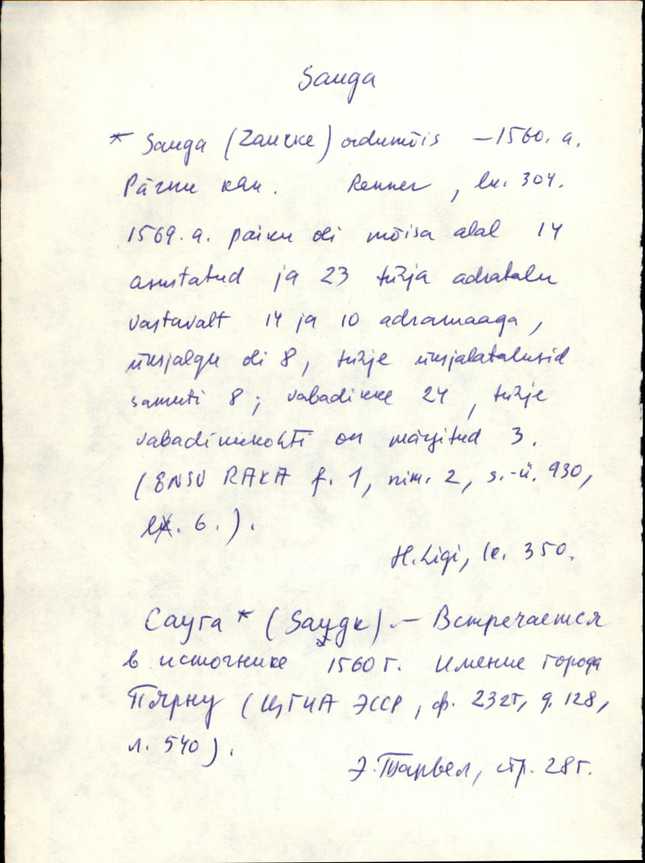 Sauga
* Sauga (Zaucke) ordumõis – 1560. a.
Pärnu khn. Renner, lk. 304.
1569. a. paiku oli mõisa alal 14
asustatud ja 23 tühja adratalu
vastavalt 14 ja 10 adramaaga,
üksjalgu oli 8, tühje üksjalatalusid
samuti 8; vabadikke 24, tühje
vabadikukohti on märgitud 3.
(ENSV RAKA f. 1, nim. 2, s.-ü. 930,
lk. 6.).
H. Ligi, lk. 350.
Сауга * (Sa). – Встречается
в источнике 1560 г. Имение города
Пярну (ЦГИА ЭССР, ф. , д. 128,
л. 540).
Э. Тарвел, стр.